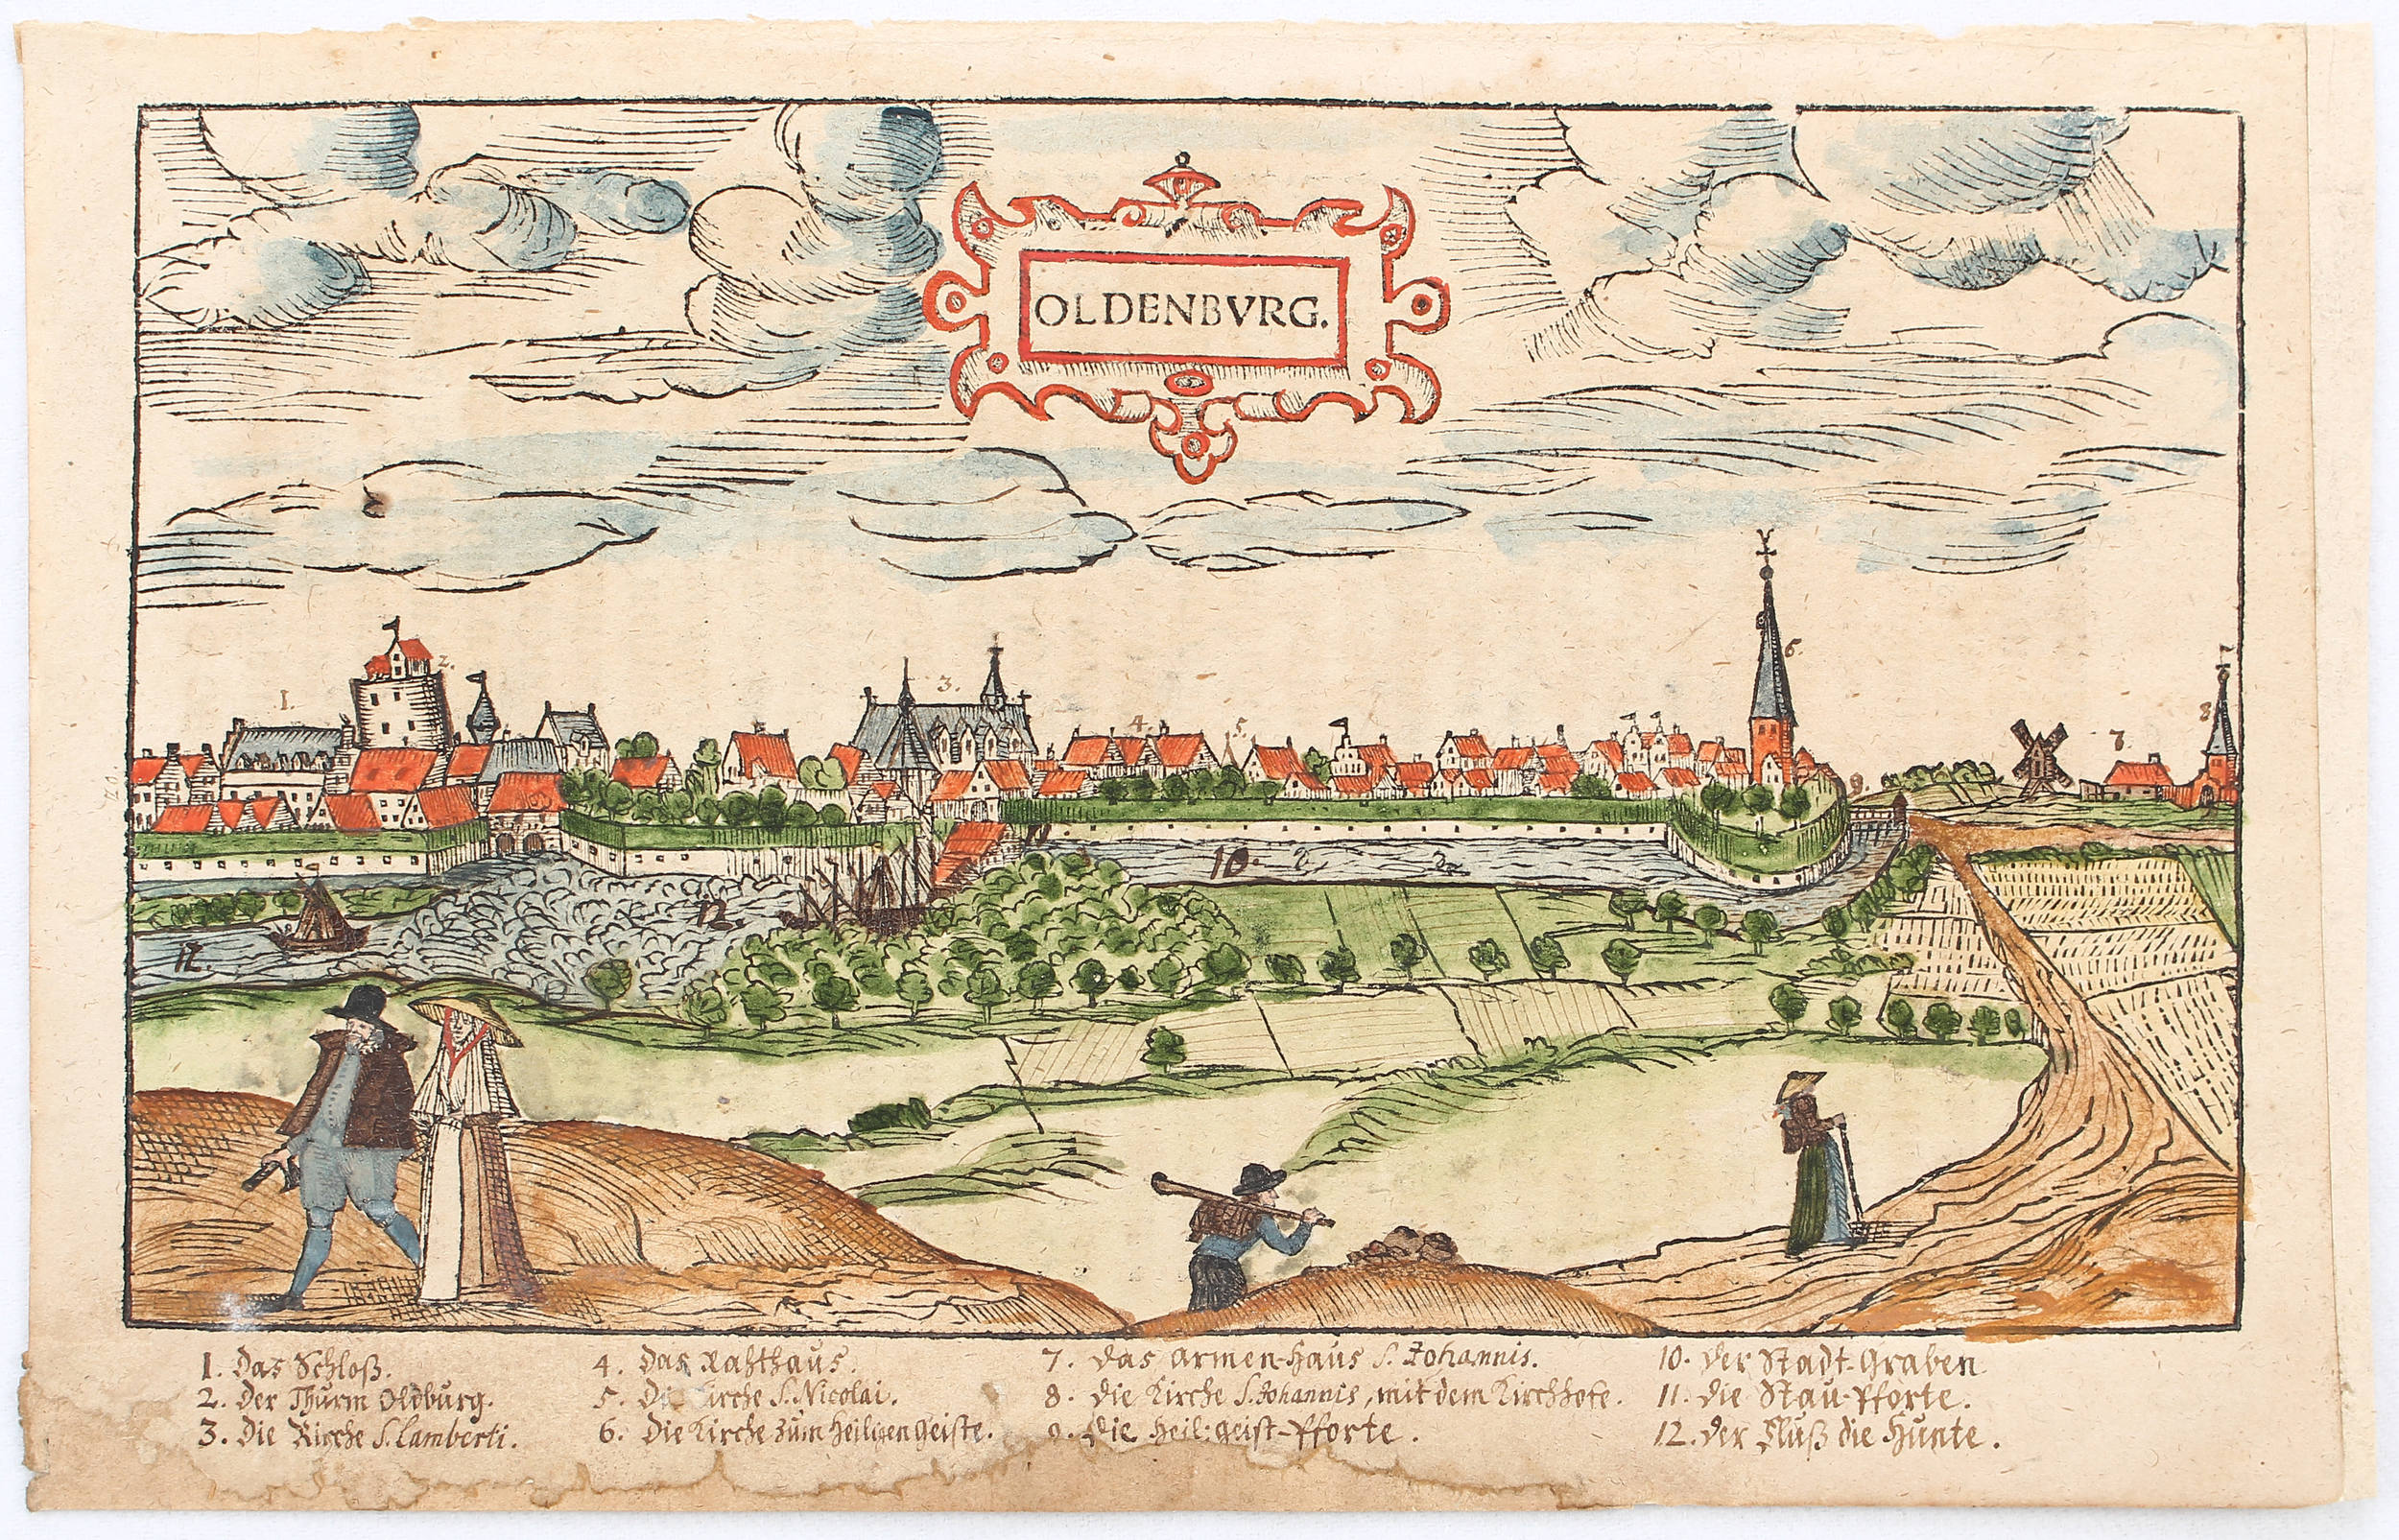 OLDENBVRG.
1.
2.
3.
4.
5.
6.
7.
8.
9.
10.
12.
12.
1. Das Schloß.
2. Der Thurm Oldburg.
3. Die Kirche S. Lamberti.
4. Das Rahthaus.
5. Kirche S. Nicolai.
6. Die Kirche zum heiligen Geiste.
7. das Armen-Haus S. Johannis.
8. die Kirche S. Johannis, mit dem Kirchhofe.
9. Die heil: geist-Pforte.
10. der Stadt-Graben
11. die Stau-Pforte.
12. der Fluß die Hunte.